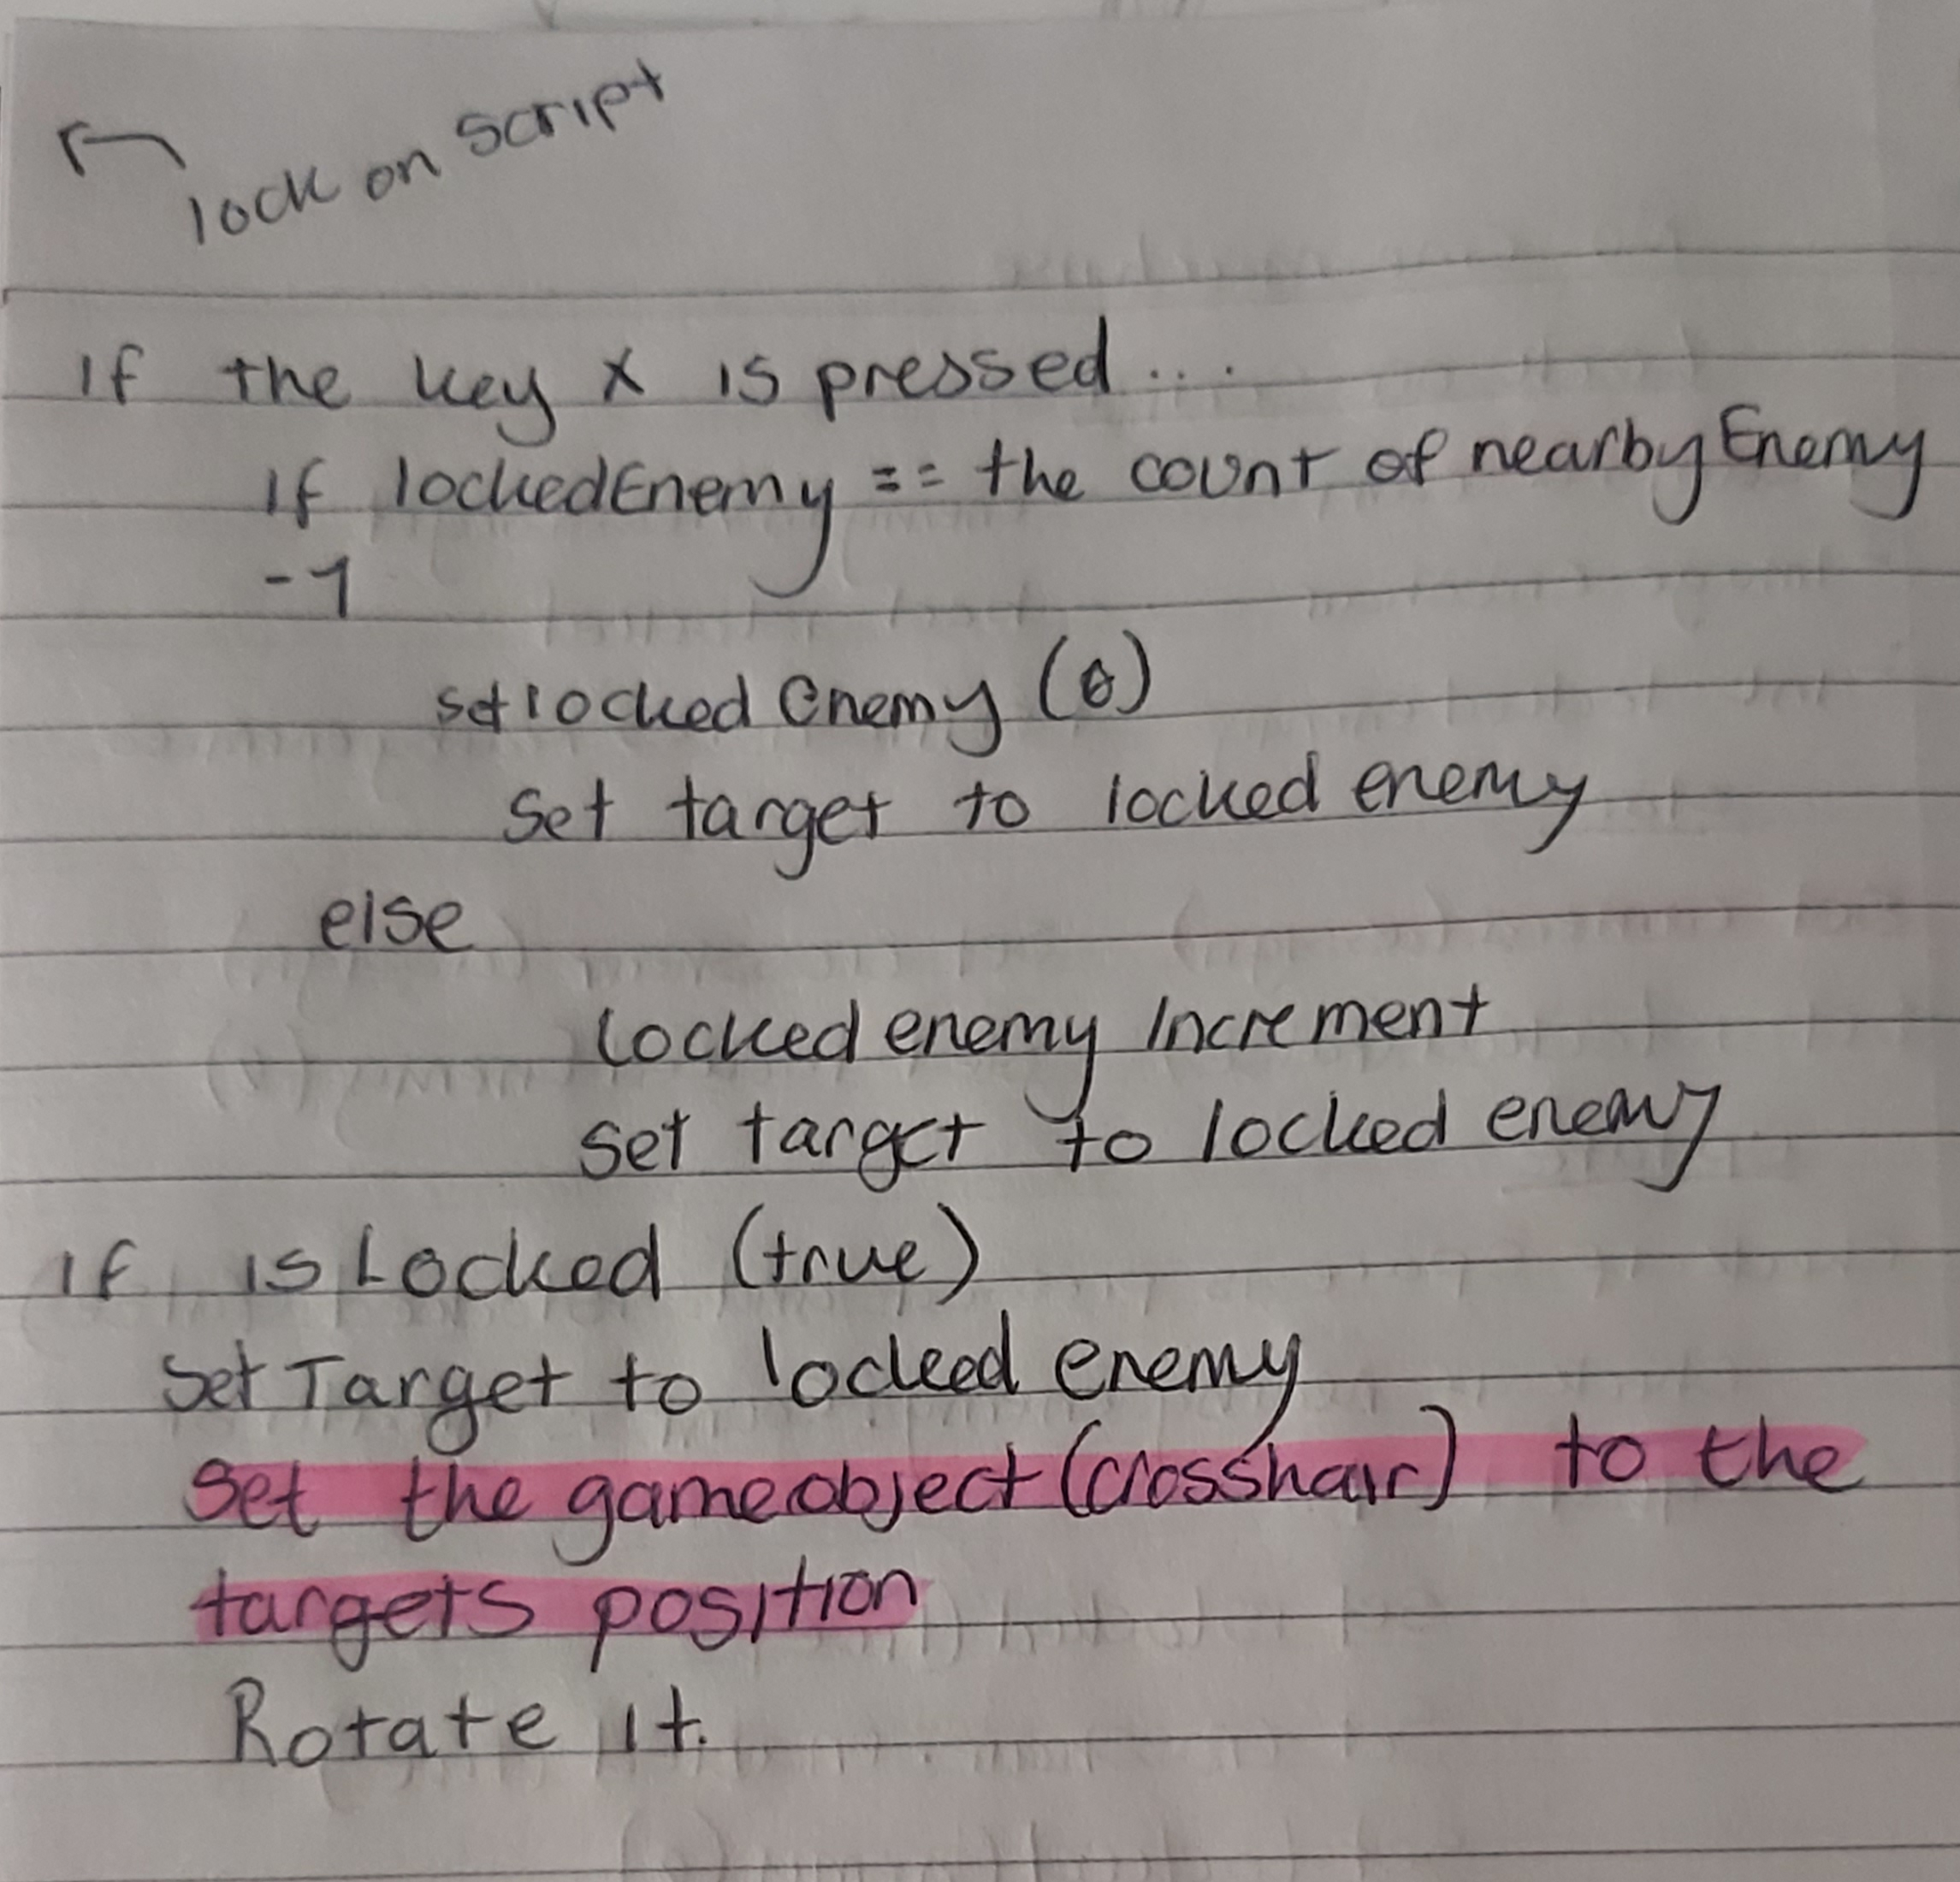 lock on script
If the key x is pressed...
If lockedEnemy == the count of nearby Enemy
-1
set locked enemy (0)
Set target to locked enemy
else
Locked enemy Increment
set target to locked enemy
If is Locked (true)
Set Target to locked enemy
Set the gameobject (crosshair) to the
targets position
Rotate it.